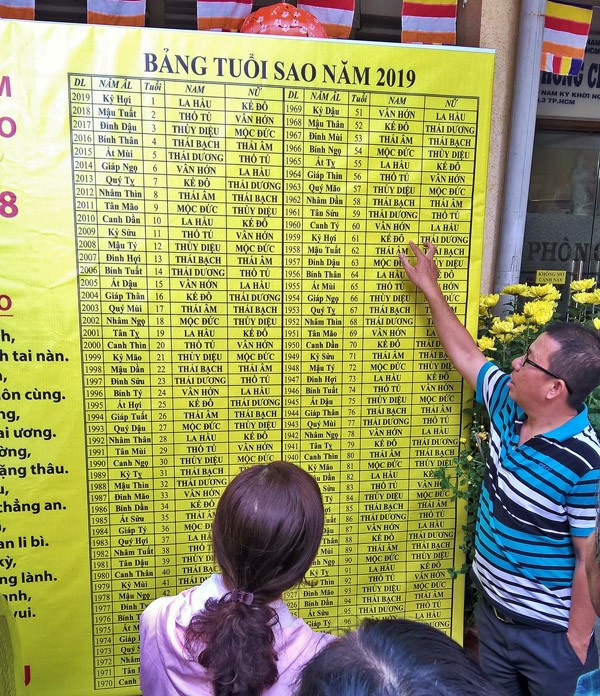 BẢNG TUỔI SAO NĂM 2019
DL NĂM ÂL Tuổi NAM NỮ DL NĂM ÂL Tuổi NAM NỮ
2019 Kỷ Hợi 1 LA HẦU KẾ ĐÔ 1969 Kỷ Dậu 51 VÂN HỚN LA HẦU
2018 Mậu Tuất 2 THỔ TÚ VÂN HỚN 1968 Mậu Thân 52 KẾ ĐÔ THÁI DƯƠNG
2017 Đinh Dậu 3 THỦY DIỆU MỘC ĐỨC 1967 Đinh Mùi 53 THÁI ÂM THÁI BẠCH
2016 Bính Thân 4 THÁI BẠCH THÁI ÂM 1966 Bính Ngọ 54 MỘC ĐỨC THỦY DIỆU
2015 Ất Mùi 5 THÁI DƯƠNG THỔ TÚ 1965 Ất Tỵ 55 LA HẦU KẾ ĐÔ
2014 Giáp Ngọ 6 VÂN HỚN LA HẦU 1964 Giáp Thìn 56 THỔ TÚ VÂN HỚN
2013 Quý Tỵ 7 KẾ ĐÔ THÁI DƯƠNG 1963 Quý Mão 57 THỦY DIỆU MỘC ĐỨC
2012 Nhâm Thìn 8 THÁI ÂM THÁI BẠCH 1962 Nhâm Dần 58 THÁI BẠCH THÁI ÂM
2011 Tân Mão 9 MỘC ĐỨC THỦY DIỆU 1961 Tân Sửu 59 THÁI DƯƠNG THỔ TÚ
2010 Canh Dần 10 LA HẦU KẾ ĐÔ 1960 Canh Tý 60 VÂN HỚN LA HẦU
2009 Kỷ Sửu 11 THỔ TÚ VÂN HỚN 1959 Kỷ Hợi 61 KẾ ĐÔ THÁI DƯƠNG
2008 Mậu Tý 12 THỦY DIỆU MỘC ĐỨC 1958 Mậu Tuất 62 THÁI BẠCH
2007 Đinh Hợi 13 THÁI BẠCH THÁI ÂM 1957 Đinh Dậu 63 MỘC THỦY DIỆU
2006 Bính Tuất 14 THÁI DƯƠNG THỔ TÚ 1956 Bính Thân 64 LA HẦU KẾ ĐÔ
2005 Ất Dậu 15 VÂN HỚN LA HẦU 1955 Ất Mùi 65 THỔ TÚ VÂN HỚN
2004 Giáp Thân 16 KẾ ĐÔ THÁI DƯƠNG 1954 Giáp Ngọ 66 THỦY DIỆU MỘC ĐỨC
2003 Quý Mùi 17 THÁI ÂM THÁI BẠCH 1953 Quý Tỵ 67 THÁI BẠCH THÁI ÂM
2002 Nhâm Ngọ 18 MỘC ĐỨC THỦY DIỆU 1952 Nhâm Thìn 68 THÁI DƯƠNG THỔ TÚ
2001 Tân Tỵ 19 LA HẦU KẾ ĐÔ 1951 Tân Mão 69 VÂN HỚN LA HẦU
2000 Canh Thìn 20 THỔ TÚ VÂN HỚN 1950 Canh Dần 70 KẾ ĐÔ THÁI DƯƠNG
1999 Kỷ Mão 21 THỦY DIỆU MỘC ĐỨC 1949 Kỷ Sửu 71 THÁI ÂM THÁI BẠCH
1998 Mậu Dần 22 THÁI BẠCH THÁI ÂM 1948 Mậu Tý 72 MỘC ĐỨC THỦY DIỆU
1997 Đinh Sửu 23 THÁI DƯƠNG THỔ TÚ 1947 Đinh Hợi 73 LA HẦU KẾ ĐÔ
1996 Bính Tý 24 VÂN HỚN LA HẦU 1946 Bính Tuất 74 THỔ TÚ VÂN HỚN
1995 Ất Hợi 25 KẾ ĐÔ THÁI DƯƠNG 1945 Ất Dậu 75 THỦY DIỆU MỘC ĐỨC
1994 Giáp Tuất 26 THÁI ÂM THÁI BẠCH 1944 Giáp Thân 76 THÁI BẠCH THÁI ÂM
1993 Quý Dậu 27 MỘC ĐỨC THỦY DIỆU 1943 Quý Mùi 77 THÁI DƯƠNG THỔ TÚ
1992 Nhâm Thân 28 LA HẦU KẾ ĐÔ 1942 Nhâm Ngọ 78 VÂN HỚN LA HẦU
1991 Tân Mùi 29 THỔ TÚ VÂN HỚN 1941 Tân Tỵ 79 KẾ ĐÔ THÁI DƯƠNG
1990 Canh Ngọ 30 THỦY DIỆU MỘC ĐỨC 1940 Canh Thìn 80 THÁI ÂM THÁI BẠCH
1989 Kỷ Tỵ 31 THÁI BẠCH Kỷ Mão 81 MỘC ĐỨC THỦY DIỆU
1988 Mậu Thìn 32 THÁI Mậu Dần 82 LA HẦU KẾ ĐÔ
1987 Đinh Mão 33 VÂN HỚN Đinh Sửu 83 THỔ TÚ VÂN HỚN
1986 Bính Dần 34 KẾ ĐÔ Tý 84 THỦY DIỆU MỘC ĐỨC
1985 Ất Sửu 35 THÁI Hợi 85 THÁI BẠCH THÁI ÂM
1984 Giáp Tý 36 MỘC 86 THÁI DƯƠNG THỔ TÚ
1983 Quý Hợi 37 LA HẦU 87 VÂN HỚN LA HẦU
1982 Nhâm Tuất 38 THỔ 88 KẾ ĐÔ THÁI DƯƠNG
1981 Tân Dậu 39 THỦY 89 THÁI ÂM THÁI BẠCH
1980 Canh Thân 40 THÁI 90 MỘC ĐỨC THỦY DIỆU
1979 Kỷ Mùi 41 91 LA HẦU KẾ ĐÔ
1978 Mậu Ngọ 92 THỔ TÚ VÂN HỚN
1977 Đinh 93 THỦY DIỆU MỘC ĐỨC
1976 Bính 94 THÁI BẠCH THÁI ÂM
1975 Ất 95 THÁI DƯƠNG THỔ TÚ
1974 Giáp 96
1973 Quý
1972 Nhâm
1971 Tân
1970 Canh
M
O
8
O
h,
h tai nàn.
ôn cùng.
ng,
ai ương.
ường,
ặng thâu.
u,
chẳng an.
n li bì.
kỳ,
ng lành.
anh,
vui.
NAM KỲ KHỞI
.3 TP.HCM
PHÒNG